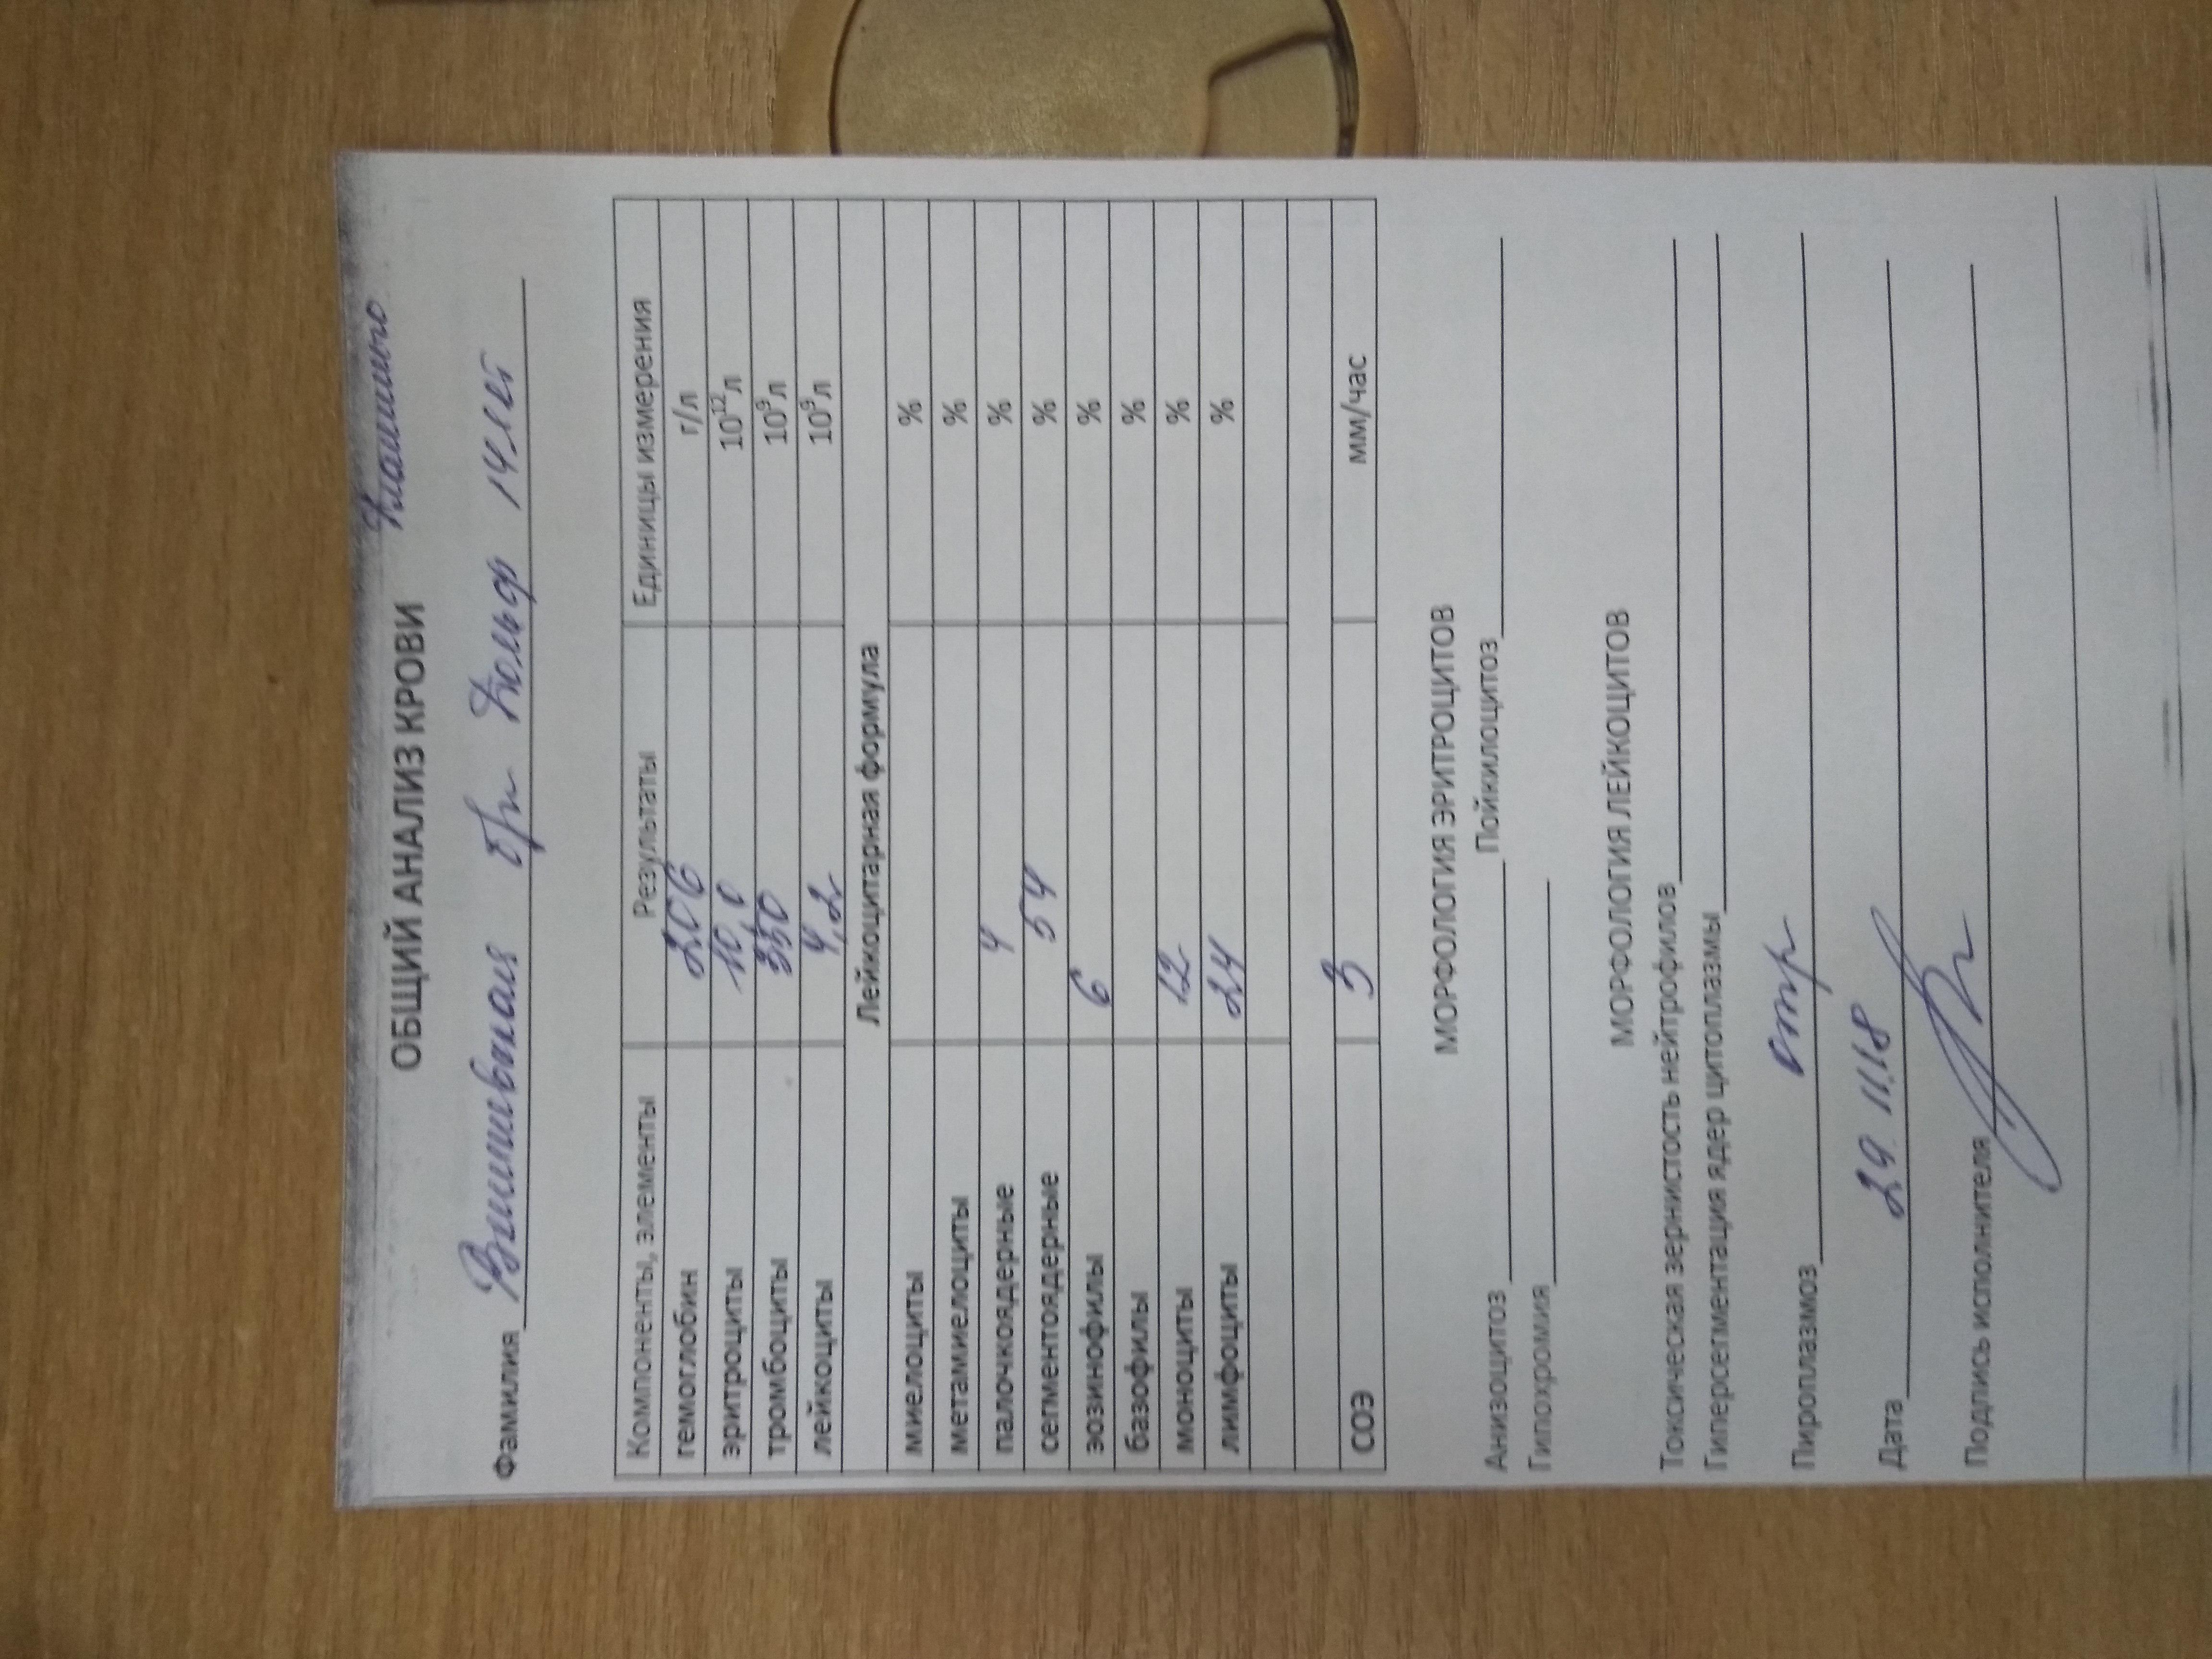 Фламинго
ОБЩИЙ АНАЛИЗ КРОВИ
Фамилия Вишневская Ердельф 14 лет
Компоненты, элементы Результаты Единицы измерения
гемоглобин 206 г/л
эритроциты 10,0 10¹²л
тромбоциты 350 10⁹л
лейкоциты 4,2 10⁹л
Лейкоцитарная формула
миелоциты %
метамиелоциты %
палочкоядерные 4 %
сегментоядерные 54 %
эозинофилы 6 %
базофилы %
моноциты 12 %
лимфоциты 24 %
СОЭ 3 мм/час
МОРФОЛОГИЯ ЭРИТРОЦИТОВ
Анизоцитоз Пойкилоцитоз
Гипохромия
МОРФОЛОГИЯ ЛЕЙКОЦИТОВ
Токсическая зернистость нейтрофилов
Гиперсегментация ядер цитоплазмы
Пироплазмоз отр
Дата 29.11.18
Подпись исполнителя